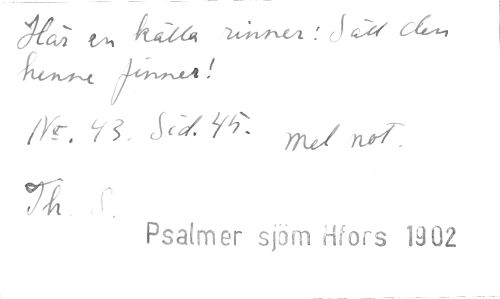 Här en källa rinner: Säll den
henne finner!
No. 43. Sid. 45. mel not.
Th. S.
Psalmer sjöm Hfors 1902